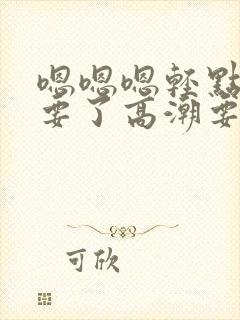 嗯嗯嗯轻點
要了高潮要
可欣